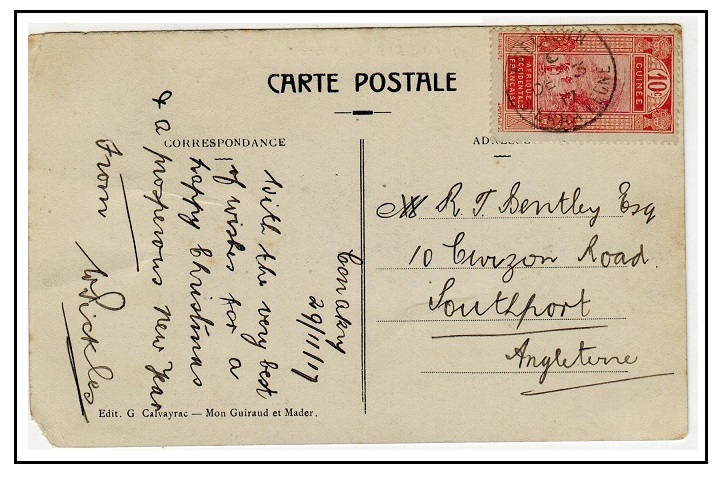 CARTE POSTALE
CORRESPONDANCE
Conakry
29/11/17
With the very best
of wishes for a
happy Christmas
& a prosperous New Year
From
W Sickles
ADRESSE
R. T. Bentley Esq
10 Curzon Road.
Southport
Angleterre
GUINÉE
10c
AFRIQUE
OCCIDENTALE
FRANÇAISE
Edit. G Calvayrac — Mon Guiraud et Mader.